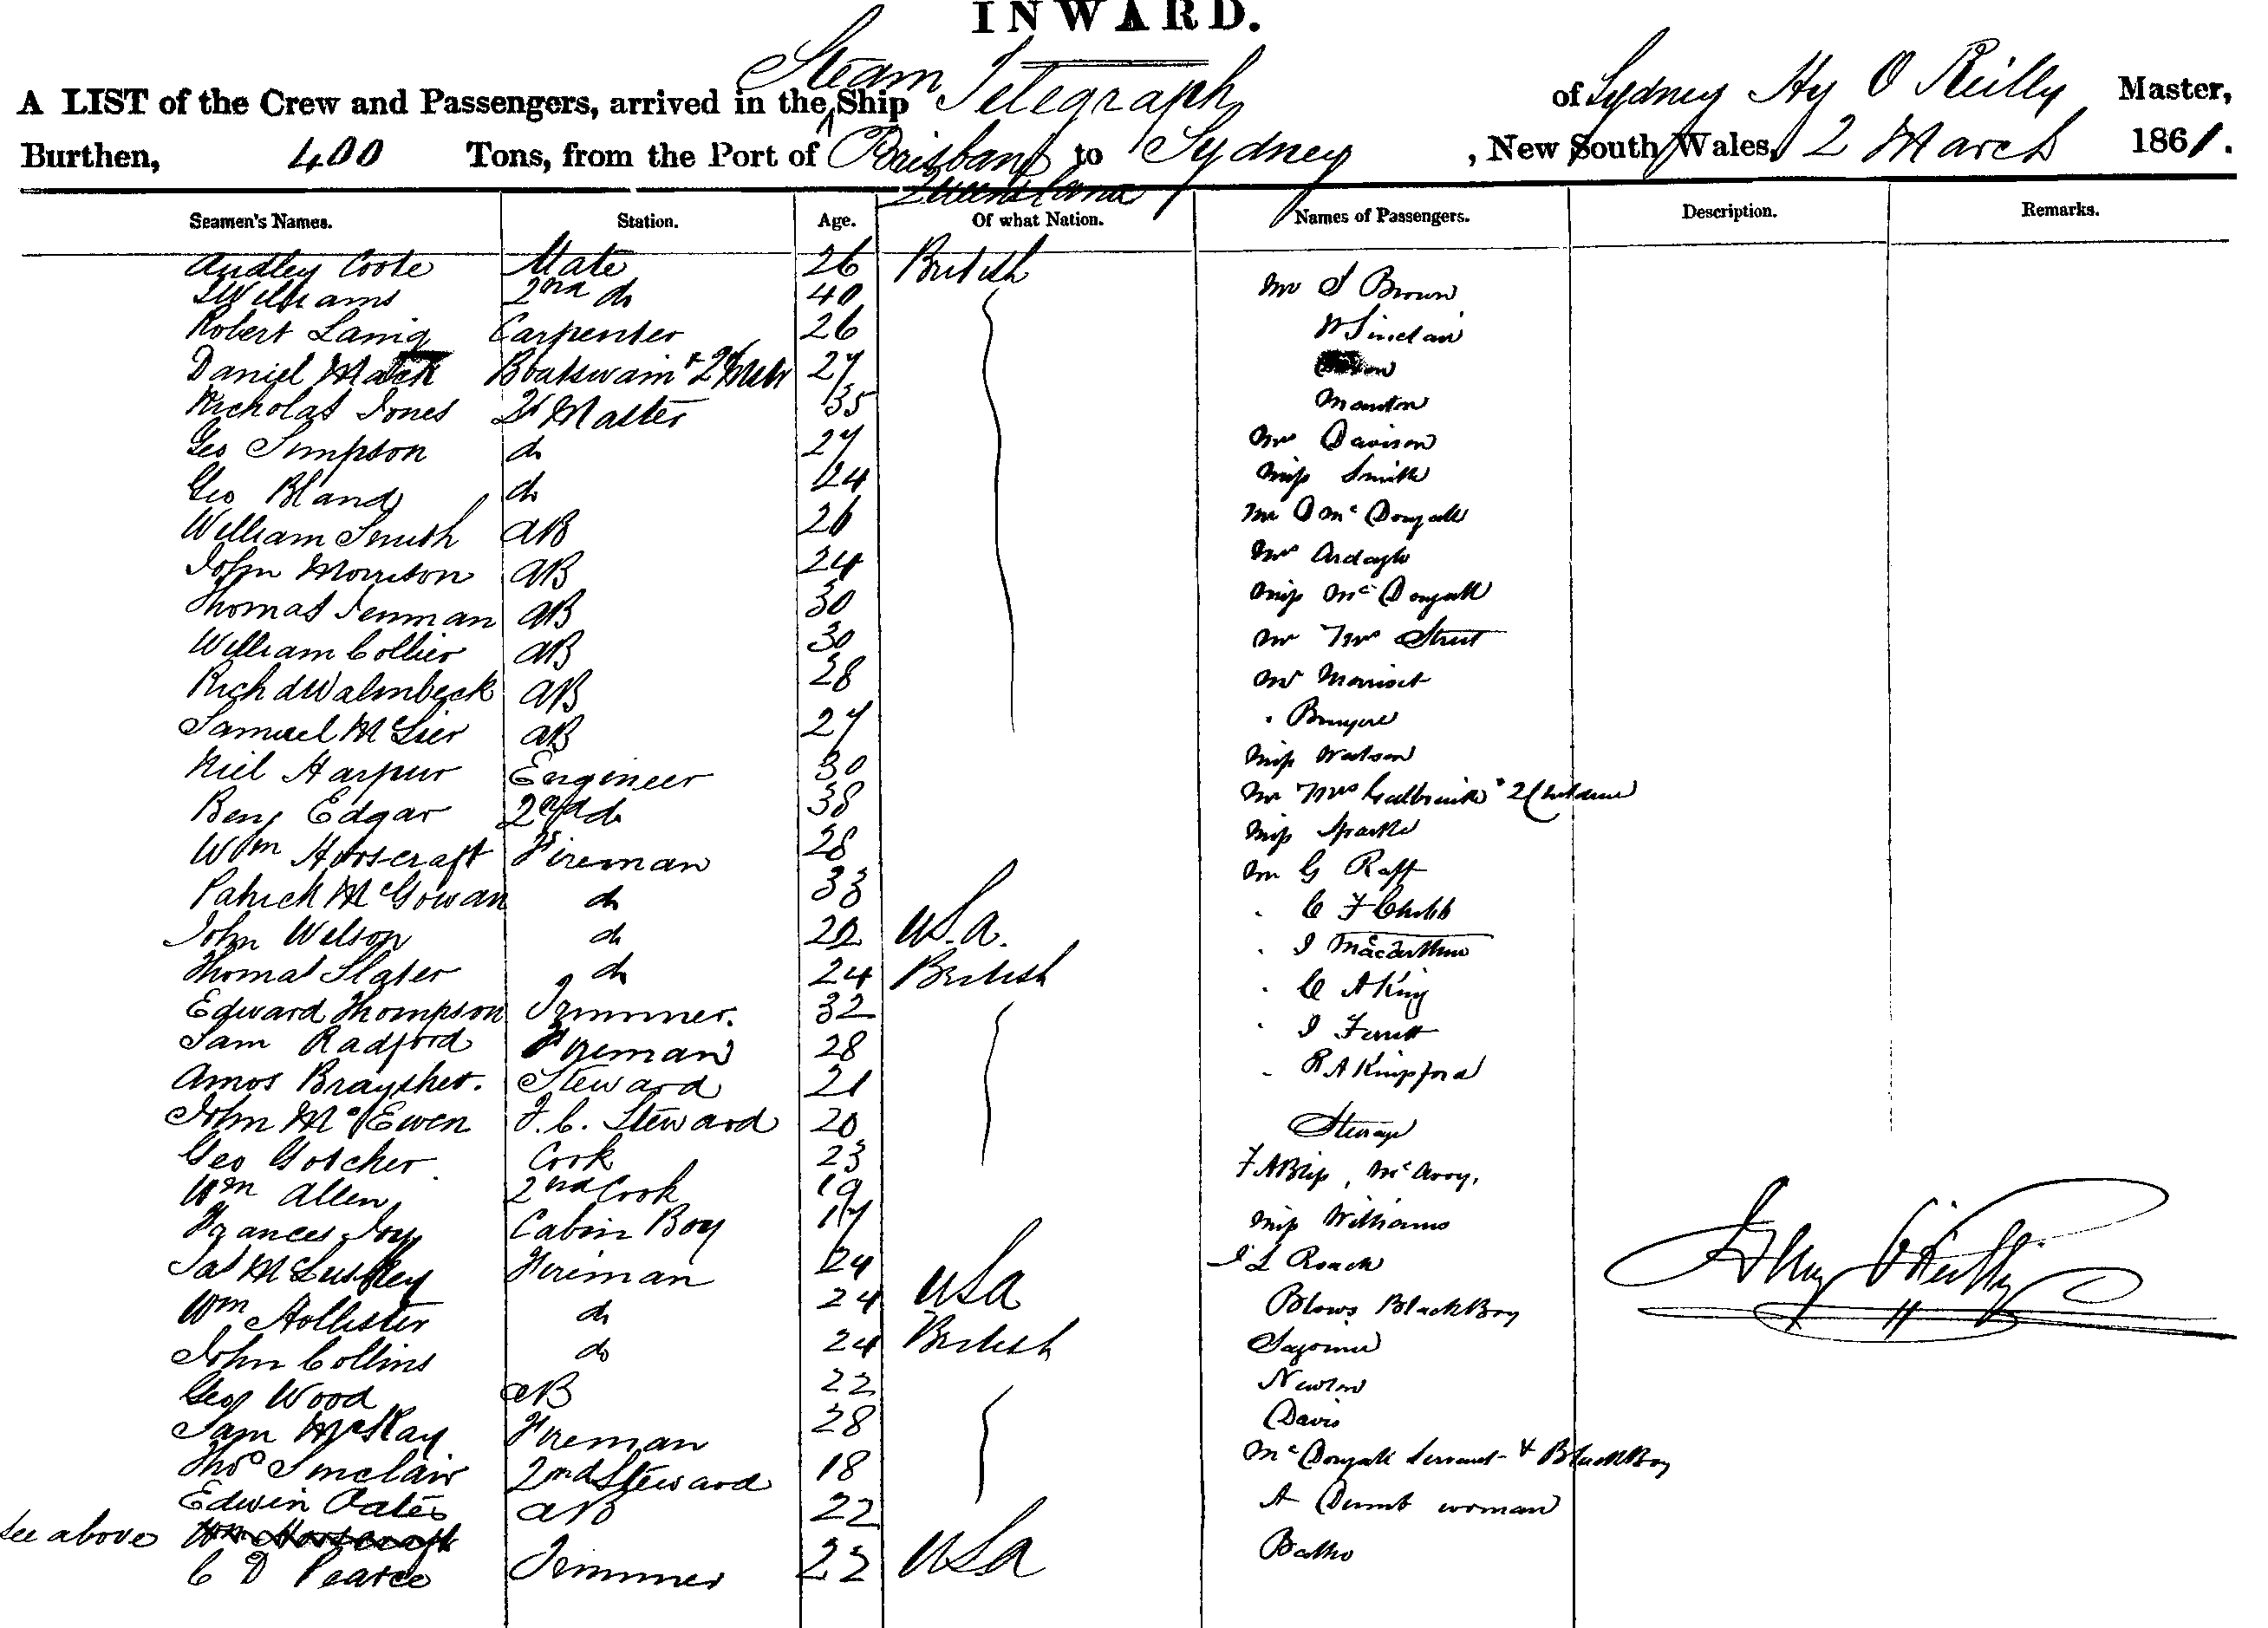 INWARD.
A LIST of the Crew and Passengers, arrived in the Steam Ship Telegraph of Sydney Hy O Reilly Master,
Burthen, 400 Tons, from the Port of Brisbane to Sydney, New South Wales, 2 March 1861.
Queensland
Seamen's Names. Station. Age. Of what Nation. Names of Passengers. Description. Remarks.
Audley Coote Mate 26 British
Williams 2nd do 40 Mr S Brown
Robert Laing Carpenter 26 W Sinclair
Daniel Mack Boatswain & 27
Nicholas Jones Qr Master 35 Manton
Geo Simpson do 27 Mrs Davison
Geo Bland do 24 Miss Smith
William Smith AB 26 Mr D McDougall
John Morrison AB 24 Mrs Ardagh
Thomas Jenman AB 30 Miss McDougall
William Collier AB 30 Mr & Mrs Street
Richd Walmbeck AB 28 Mr Morriset
Samuel McLier AB 27 " Bruyere
Niel Harpur Engineer 30 Miss Watson
Benj Edgar 2nd do 38 Mr & Mrs Galbraith & 2 Children
Wm Horscraft Fireman 28 Miss Sparks
Patrick McGowan do 33 Mr G Raff
John Welson do 22 U.S.A. " C F Chubb
Thomas Slater do 24 British " J Macarthur
Edward Thompson Trimmer. 32 " C A King
Sam Radford Fireman 28 " J Ferrett
Amos Braysher. Steward 21 " R A Kingsford
John McEwen F.C. Steward 20 Steerage
Geo Gotcher Cook 23 F A Blip, McAvoy,
Wm Allen 2nd Cook 19 Miss Williams
Frances Joy Cabin Boy 17 J L Roach
Jas McLuskey Fireman 24 Blows Black Boy
Wm Hollister do 24 USA
John Collins do 24 British Newton
Geo Wood AB 22 Davis
Sam McKay Fireman 28 McDougall Servant & Black Boy
Thos Sinclair 2nd Steward 18 A Dumb woman
Edwin Oates AB 22 Batho
See above Wm Horscraft
C D Pearce Trimmer 22 USA
Henry O'Reilly